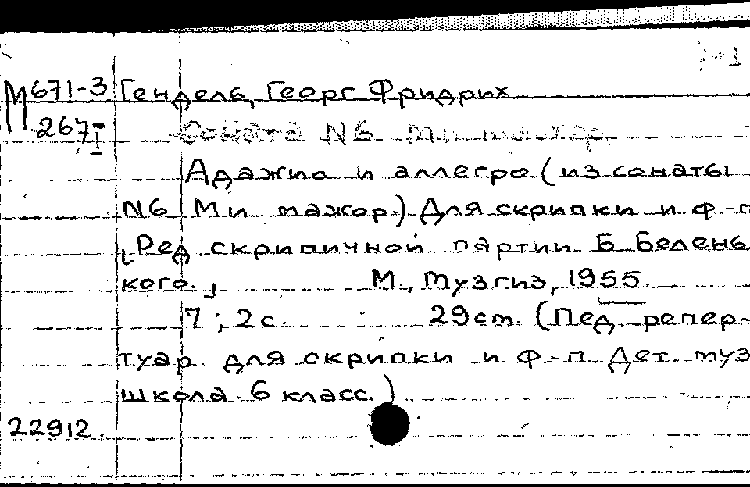 М671-3 Гендель, Георг Фридрих
267-I Соната N6 ми мажор
Адажио и аллегро (из сонаты
N6 Ми мажор.) Для скрипки и ф-п
[Ред. скрипичной партии Б. Белень
кого.] М., Музгиз, 1955
7; 2 с. 29 cm. (Пед. репер-
туар для скрипки и ф-п. Дет. муз
школа 6 класс.)
22912